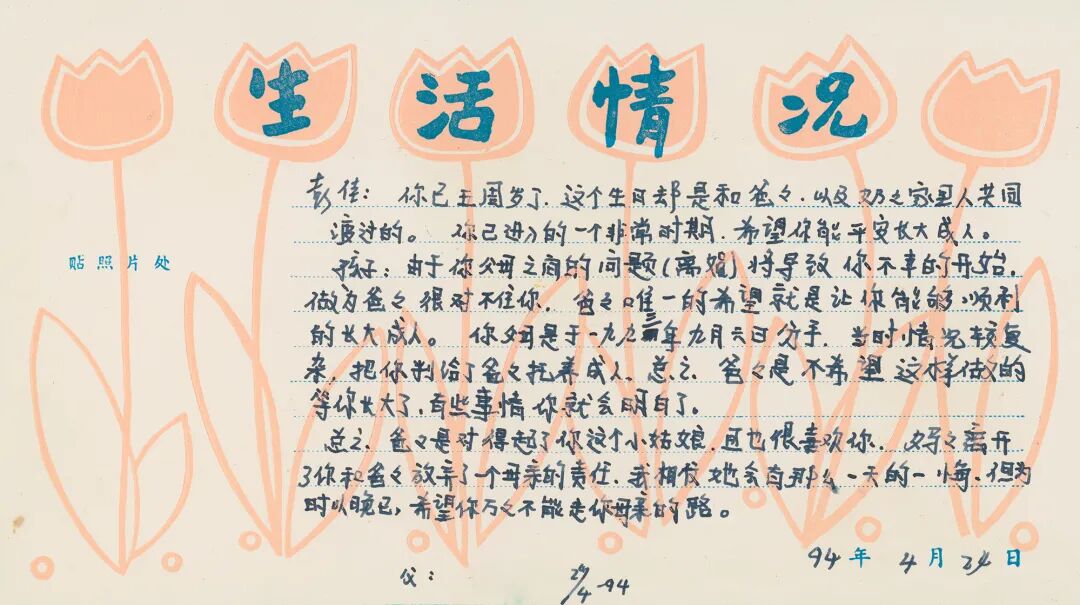 生活情况
彭佳：你已五周岁了，这个生日却是和爸々、以及奶々家里人共同
渡过的。你已进入的一个非常时期，希望你能平安长大成人。
贴照片处
孩子：由于你父母之间的问题（离婚）将导致你不幸的开始，
做为爸々很对不住你，爸々唯一的希望就是让你能够顺利
的长大成人。你妈是于一九九三年九月六日分手，当时情况较复
杂，把你判给了爸々抚养成人、总之，爸々是不希望这样做的
等你长大了，有些事情你就会明白了。
总之，爸々是对得起了你这个小姑娘，且也很喜欢你，妈々离开
了你和爸々放弃了一个母亲的责任，我相信她会有那么一天的一悔，但为
时以晚已，希望你万々不能走你母亲的路。
94年4月24日
父：
24/4-94